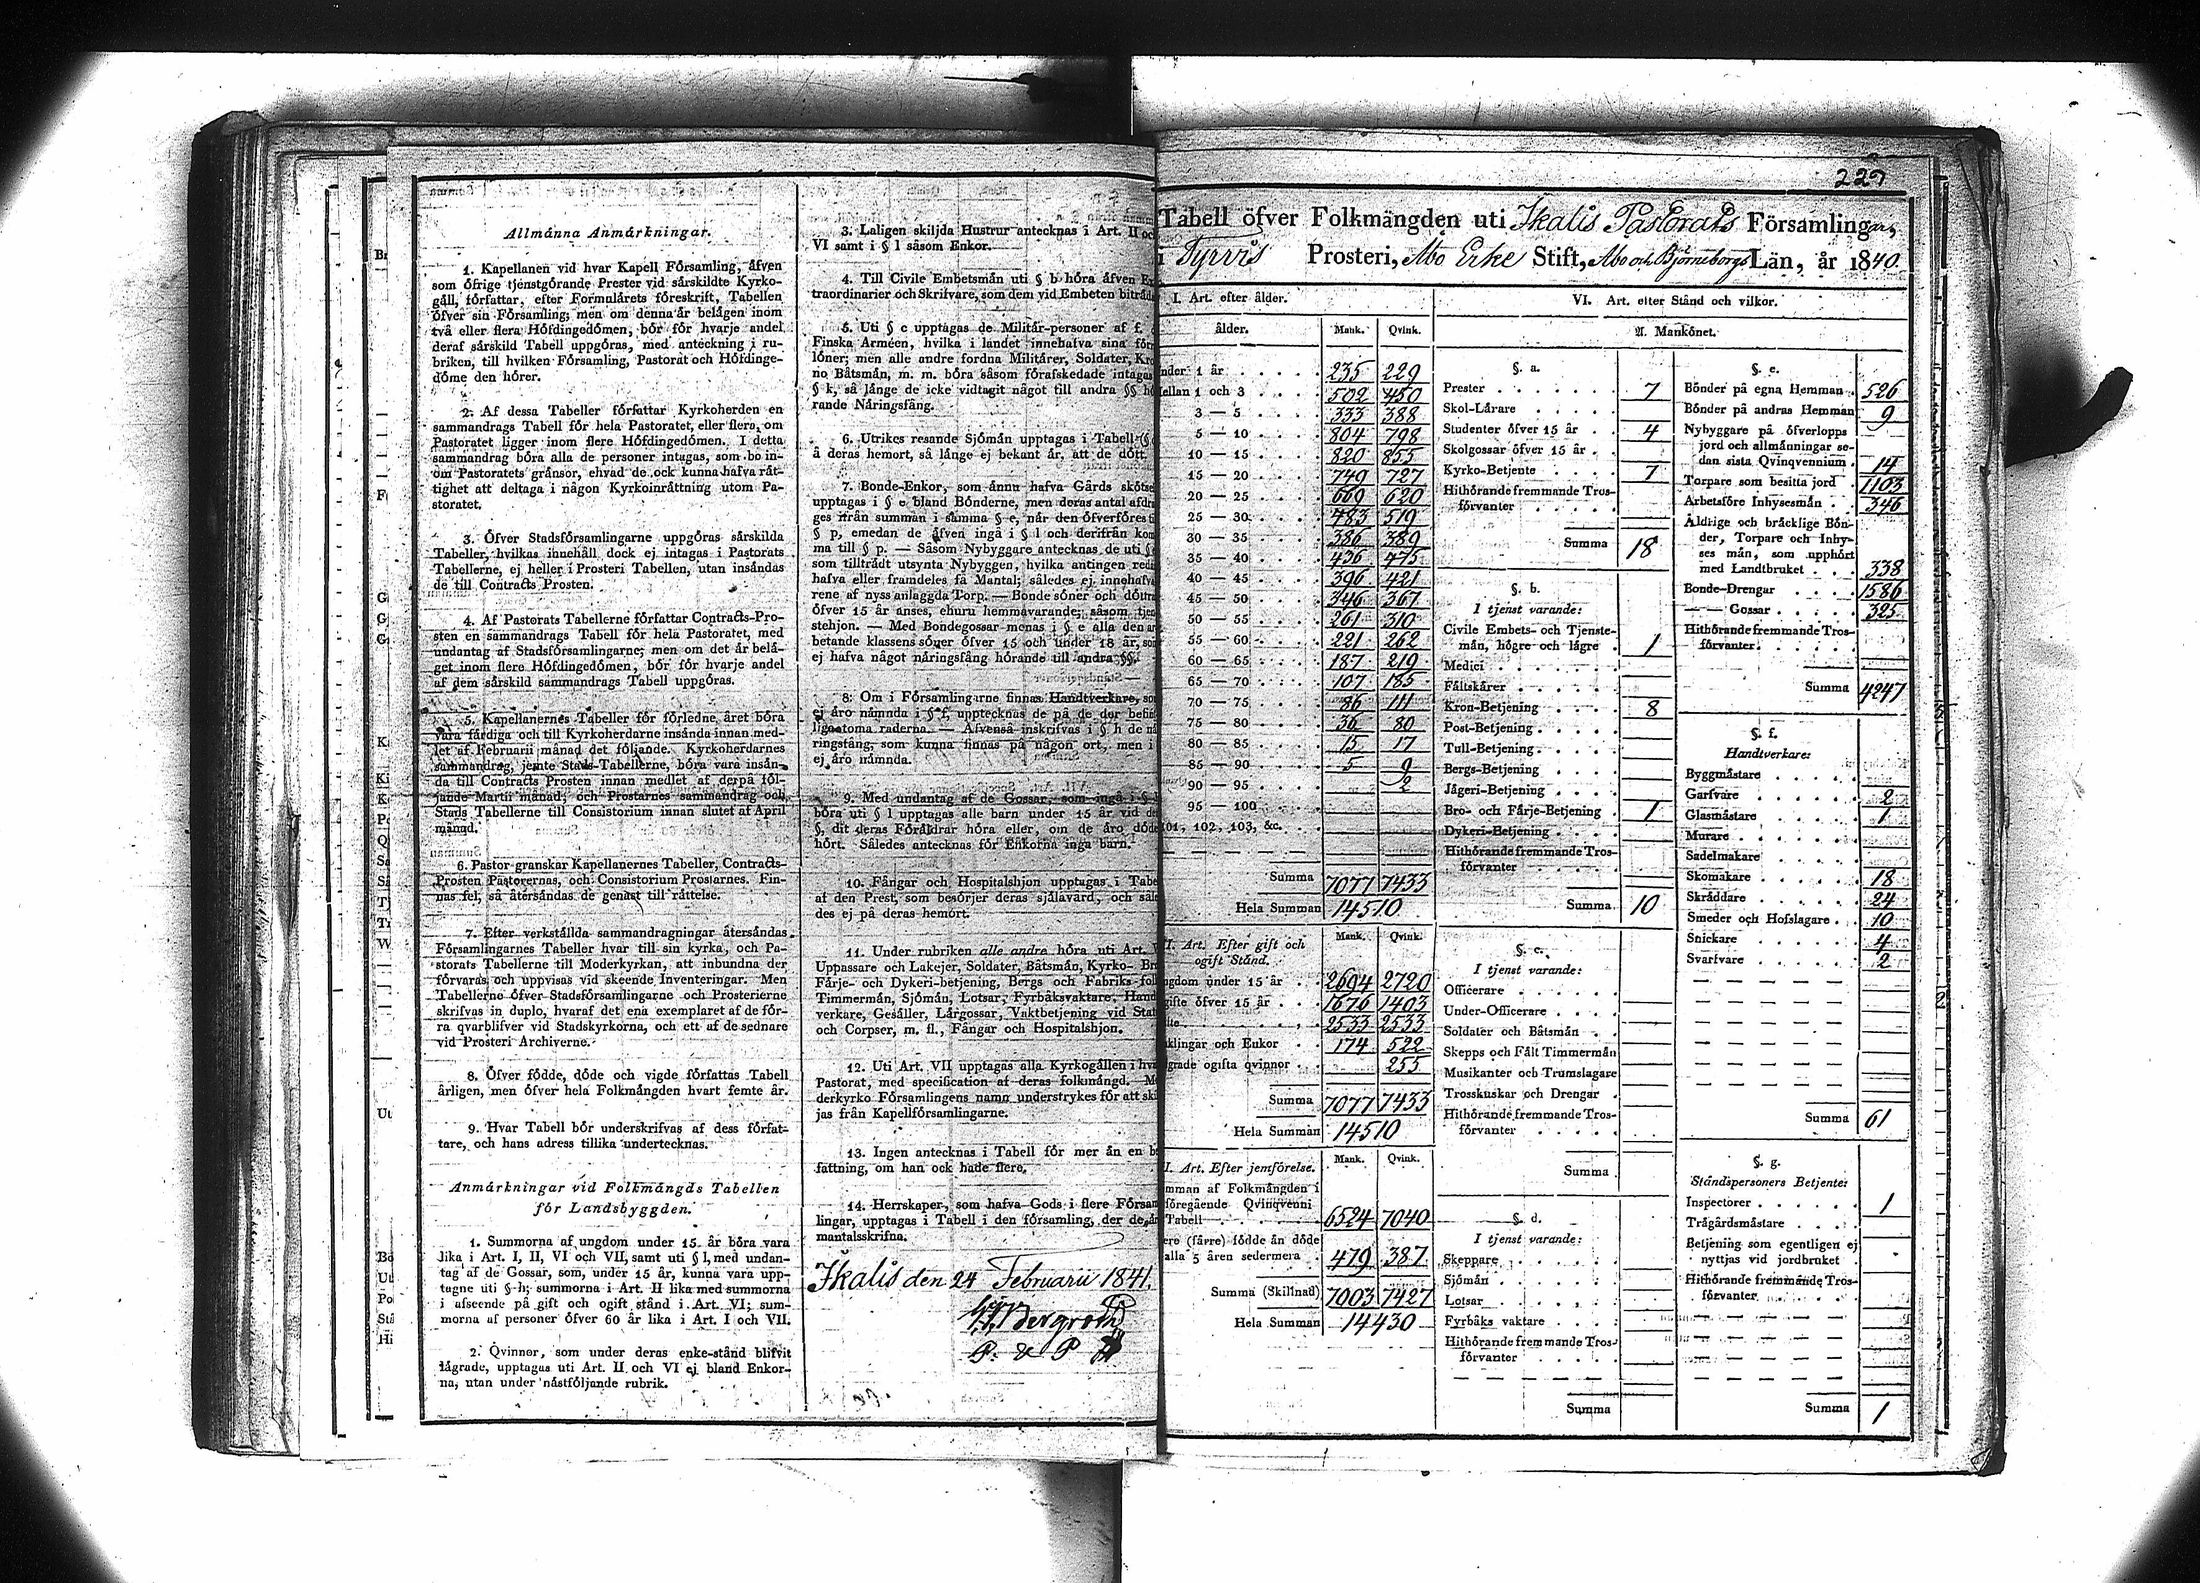 Allmänna Anmärkningar.
1. Kapellanen vid hvar Kapell Församling, äfven
som öfrige tjenstgörande Prester vid särskildte Kyrko-
gäll, författar, efter Formulärets föreskrift, Tabellen
öfver sin Församling; men om denna är belägen inom
två eller flera Höfdingedömen, bör för hvarje andel
deraf särskild Tabell uppgöras, med anteckning i ru-
briken, till hvilken Församling, Pastorat och Höfdinge-
döme den hörer.
2. Af dessa Tabeller författar Kyrkoherden en
sammandrags Tabell för hela Pastoratet, eller flera, om
Pastoratet ligger inom flere Höfdingedömen. I detta
sammandrag böra alla de personer intagas, som bo in-
om Pastoratets gränsor, ehvad de ock kunna hafva rät-
tighet att deltaga i någon Kyrkoinrättning utom Pa-
storatet.
3. Öfver Stadsförsamlingarne uppgöras särskilda
Tabeller, hvilkas innehåll dock ej intagas i Pastorats
Tabellerne, ej heller i Prosteri Tabellen, utan insändas
de till Contracts Prosten.
4. Af Pastorats Tabellerne författar Contracts-Pro-
sten en sammandrags Tabell för hela Pastoratet, med
undantag af Stadsförsamlingarne; men om det är belä-
get inom flere Höfdingedömen, bör för hvarje andel
af dem särskild sammandrags Tabell uppgöras.
5. Kapellanernes Tabeller för förledne året böra
vara färdiga och till Kyrkoherdarne insända innan med-
let af Februarii månad det följande. Kyrkoherdarnes
sammandrag, jemte Stads-Tabellerne, böra vara insän-
da till Contracts Prosten innan medlet af derpå föl-
jande Martii månad; och Prostarnes sammandrag och
Stads Tabellerne till Consistorium innan slutet af April
månad.
6. Pastor granskar Kapellanernes Tabeller, Contracts-
Prosten Pastorernas, och Consistorium Prostarnes. Fin-
nas fel, så återsändas de genast till rättelse.
7. Efter verkställda sammandragningar återsändas
Församlingarnes Tabeller hvar till sin kyrka, och Pa-
storats Tabellerne till Moderkyrkan, att inbundna der
förvaras och uppvisas vid skeende Inventeringar. Men
Tabellerne öfver Stadsförsamlingarne och Prosterierne
skrifvas in duplo, hvaraf det ena exemplaret af de för-
ra qvarblifver vid Stadskyrkorna, och ett af de sednare
vid Prosteri Archiverne.
8. Öfver födde, döde och vigde författas Tabell
årligen, men öfver hela Folkmängden hvart femte år.
9. Hvar Tabell bör underskrifvas af dess förfat-
tare, och hans adress tillika undertecknas.
Anmärkningar vid Folkmängds Tabellen
för Landsbyggden.
1. Summorna af ungdom under 15 år böra vara
lika i Art. I, II, VI och VII, samt uti § l, med undan-
tag af de Gossar, som, under 15 år, kunna vara upp-
tagne uti § h; summorna i Art. II lika med summorna
i afseende på gift och ogift stånd i Art. VI; sum-
morna af personer öfver 60 år lika i Art. I och VII.
2. Qvinnor, som under deras enke-stånd blifvit
lägrade, upptagas uti Art. II och VI ej bland Enkor-
na, utan under nästföljande rubrik.
3. Laligen skiljda Hustrur antecknas i Art. II oc
VI samt i § l såsom Enkor.
4. Till Civile Embetsmän uti § b höra äfven Ex
traordinarier och Skrifvare, som dem vid Embeten biträda
5. Uti § c upptagas de Militär-personer af f.
Finska Arméen, hvilka i landet innehafva sina förr
löner; men alle andre fordna Militärer, Soldater, Kro
no Båtsmän, m. m. böra såsom förafskedade intagas
§ k, så länge de icke vidtagit något till andra §§ hö
rande Näringsfång.
6. Utrikes resande Sjömän upptagas i Tabell
å deras hemort, så länge ej bekant är, att de dött.
7. Bonde-Enkor, som ännu hafva Gårds skötse
upptagas i § e bland Bönderne, men deras antal afdra
ges ifrån summan i samma § e, när den öfverföres ti
§ p, emedan de äfven ingå i § l och derifrån kom
ma till § p. — Såsom Nybyggare antecknas de uti §
som tillträdt utsynta Nybyggen, hvilka antingen reda
hafva eller framdeles få Mantal; således ej innehafva
rene af nyss anlaggda Torp. — Bonde söner och döttra
öfver 15 år anses, ehuru hemmavarande, såsom tjen
stehjon. — Med Bondegossar menas i § e alla den ar
betande klassens söner öfver 15 och under 18 år, so
ej hafva något näringsfång hörande till andra §§.
8. Om i Församlingarne finnas Handtverkare, so
ej äro nämnda i § f, upptecknas de på de der befin
liga tomma raderna. — Äfvenså inskrifvas i § h de nä
ringsfång, som kunna finnas på någon ort, men i
ej äro nämnda.
9. Med undantag af de Gossar, som ingå i §
böra uti § l upptagas alle barn under 15 år vid de
§, dit deras Föräldrar höra eller, om de äro döde
hört. Således antecknas för Enkorna inga barn.
10. Fångar och Hospitalshjon upptagas i Tabe
af den Prest, som besörjer deras själavård, och såle
des ej på deras hemort.
11. Under rubriken alle andre höra uti Art. V
Uppassare och Lakejer, Soldater, Båtsmän, Kyrko- Br
Färje- och Dykeri-betjening, Bergs och Fabriks-fol
Timmermän, Sjömän, Lotsar, Fyrbåksvaktare, Hand
verkare, Gesäller, Lärgossar, Vaktbetjening vid Stat
och Corpser, m. fl., Fångar och Hospitalshjon.
12. Uti Art. VII upptagas alla Kyrkogällen i hva
Pastorat, med specification af deras folkmängd. M
derkyrko Församlingens namn understrykes för att ski
jas från Kapellförsamlingarne.
13. Ingen antecknas i Tabell för mer än en be
fattning, om han ock hade flere.
14. Herrskaper, som hafva Gods i flere Försam
lingar, upptagas i Tabell i den församling, der de är
mantalsskrifna.
Ikalis den 24 Februarii 1841.
Bergroth
P. & P
227
Tabell öfver Folkmängden uti Ikalis Pastorats Församlingar,
i Tyrvis Prosteri, Åbo Erke Stift, Åbo och Björneborgs Län, år 1840.
I. Art. efter ålder.
ålder. Mank. Qvink.
nder 1 år 235 229
ellan 1 och 3 502 450
3 — 5 333 388
5 — 10 804 798
10 — 15 820 855
15 — 20 749 727
20 — 25 669 620
25 — 30 483 519
30 — 35 386 389
35 — 40 436 475
40 — 45 396 421
45 — 50 346 367
50 — 55 261 310
55 — 60 221 262
60 — 65 187 219
65 — 70 107 185
70 — 75 86 111
75 — 80 36 80
80 — 85 15 17
85 — 90 5 9
90 — 95 2
95 — 100
101, 102, 103, &c.
Summa 7077 7433
Hela Summan 14510
I. Art. Efter gift och
ogift Stånd. Mank. Qvink.
ngdom under 15 år 2694 2720
gifte öfver 15 år 1676 1403
ifte 2533 2533
nklingar och Enkor 174 522
grade ogifta qvinnor 255
Summa 7077 7433
Hela Summan 14510
I. Art. Efter jemförelse. Mank. Qvink.
mman af Folkmängden i
föregående Qvinqvenni
Tabell 6524 7040
ere (färre) födde än döde
alla 5 åren sedermera 479 387
Summa (Skillnad) 7003 7427
Hela Summan 14430
VI. Art. efter Stånd och vilkor.
A. Mankönet.
§. a.
Prester 7
Skol-Lärare
Studenter öfver 15 år 4
Skolgossar öfver 15 år
Kyrko-Betjente 7
Hithörande fremmande Tros-
förvanter
Summa 18
§. b.
I tjenst varande:
Civile Embets- och Tjenste-
män, högre och lägre 1
Medici
Fältskärer
Kron-Betjening 8
Post-Betjening
Tull-Betjening
Bergs-Betjening
Jägeri-Betjening
Bro- och Färje-Betjening 1
Dykeri-Betjening
Hithörande fremmande Tros-
förvanter
Summa 10
§. c.
I tjenst varande:
Officerare
Under-Officerare
Soldater och Båtsmän
Skepps och Fält Timmermän
Musikanter och Trumslagare
Trosskuskar och Drengar
Hithörande fremmande Tros-
förvanter
Summa
§. d.
I tjenst varande:
Skeppare
Sjömän
Lotsar
Fyrbåks vaktare
Hithörande fremmande Tros-
förvanter
Summa
§. e.
Bönder på egna Hemman 526
Bönder på andras Hemman 9
Nybyggare på öfverlopps
jord och allmänningar se-
dan sista Qvinqvennium 14
Torpare som besitta jord 1103
Arbetsföre Inhysesmän 346
Äldrige och bräcklige Bön-
der, Torpare och Inhy-
ses män, som upphört
med Landtbruket 338
Bonde-Drengar 1586
— — Gossar 325
Hithörande fremmande Tros-
förvanter
Summa 4247
§. f.
Handtverkare:
Byggmästare
Garfvare 2
Glasmästare 1
Murare
Sadelmakare
Skomakare 18
Skräddare 24
Smeder och Hofslagare 10
Snickare 4
Svarfvare 2
Summa 61
§. g.
Ståndspersoners Betjente:
Inspectorer 1
Trägårdsmästare
Betjening som egentligen ej
nyttjas vid jordbruket
Hithörande fremmande Tros-
förvanter
Summa 1